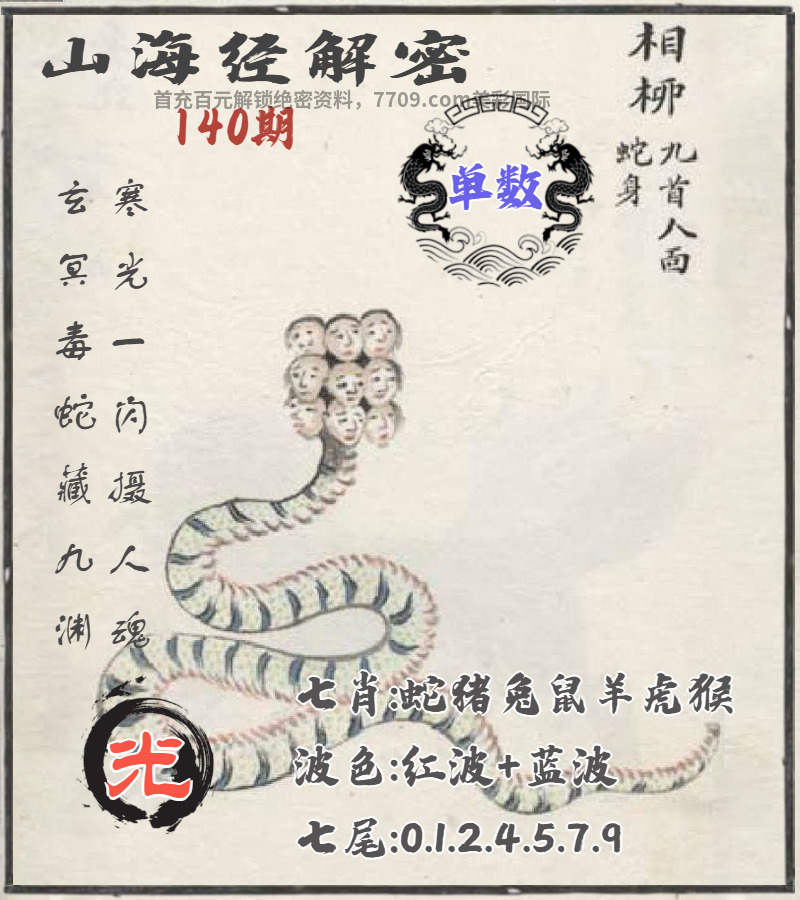 山海经解密
首充百元解锁绝密资料，7709.com美彩国际
140期
单数
相柳
九首人面
蛇身
寒光一闪摄人魂
玄冥毒蛇藏九渊
七肖:蛇猪兔鼠羊虎猴
光
波色:红波+蓝波
七尾:0.1.2.4.5.7.9